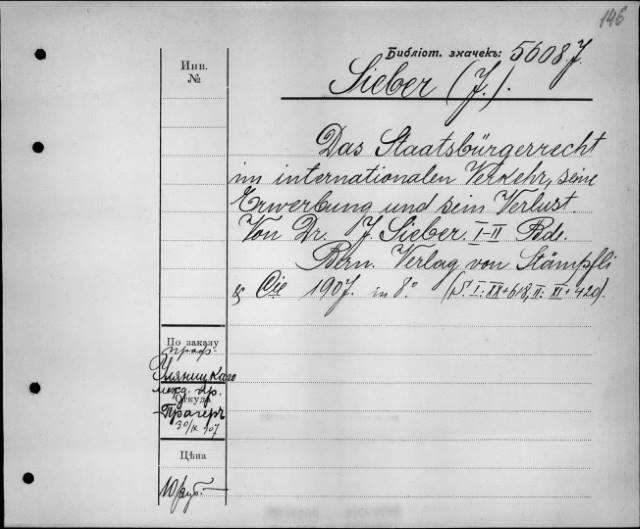 146
Библіот. значекъ: 5608 J.
Инв.
№
Sieber (J.).
Das Staatsbürgerrecht
im internationalen Verkehr, seine
Erwerbung und sein Verlust.
Von Dr. J. Sieber. I-II Bde.
Bern. Verlag von Stämpfli
& Cie 1907. in 8°. (S. I: XX+618; II: XI+420).
По заказу
проф.
Уляницкаго
межд. пр.
Откуда
Прагеръ
30/IX 907
Цѣна
10 руб. —